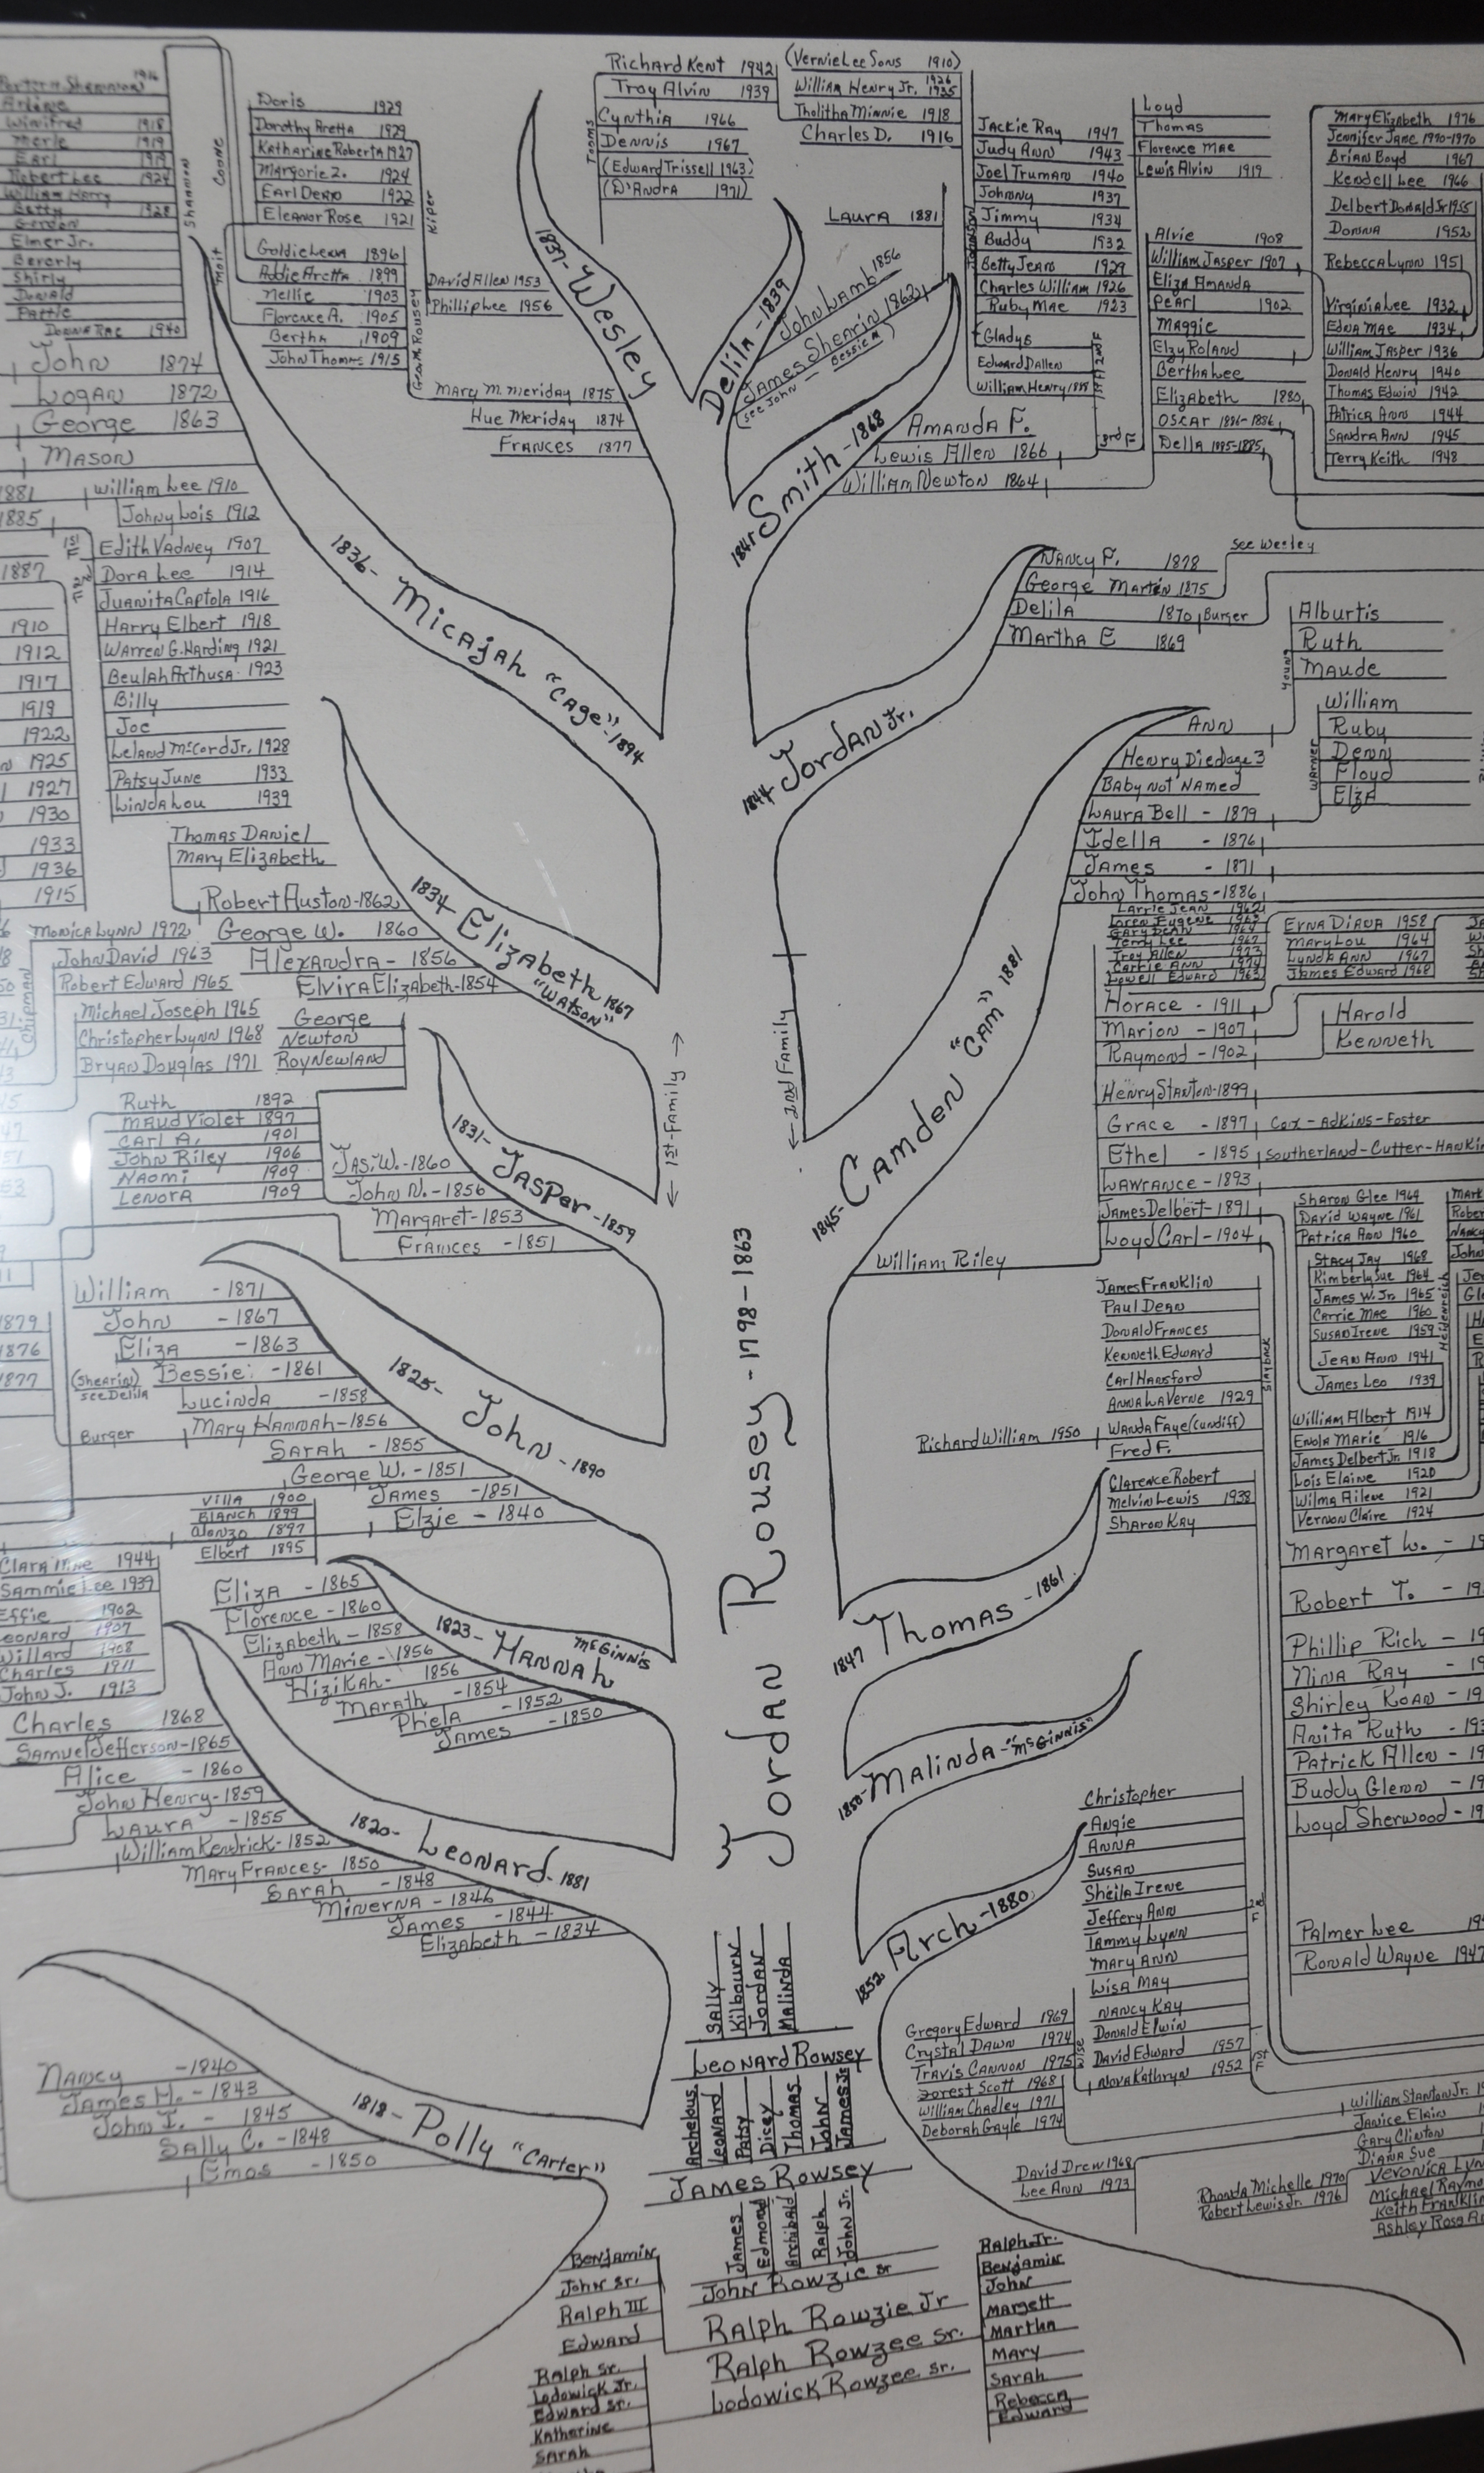 Winifred 1918
Merle 1919
Earl
Robert Lee 1924
William Harry
Betty 1928
Gordon
Elmer Jr.
Beverly
Shirly
Donald
Pattie
Donna Rae 1940
Shannon
Coone
Moit
John 1874
Logan 1872
George 1863
Mason
Doris 1929
Dorothy Aretta 1929
Katharine Roberta 1927
Marjorie Z. 1924
Earl Deao 1922
Eleanor Rose 1921
Kiper
Goldie Leona 1896
Addie Aretta 1899
Nellie 1903
Florence A. 1905
Bertha 1909
John Thomas 1915
Geo. M. Rousey
David Allen 1953
Phillip Lee 1956
Mary M. Meriday 1875
Hue Meriday 1874
Frances 1877
1837- Wesley
Richard Kent 1942
Troy Alvin 1939
Cynthia 1966
Dennis 1967
(Edward Trissell 1963)
(D'Andra 1971)
Tooms
(Vernie Lee Sons 1910)
William Henry Jr. 1926 1935
Tholitha Minnie 1918
Charles D. 1916
Laura 1881
Delila - 1839
John Lamb 1856
James Shearin 1862
(see John - Bessie)
Jackie Ray 1947
Judy Ann 1943
Joel Truman 1940
Johnny 1937
Jimmy 1934
Buddy 1932
Betty Jean 1929
Charles William 1926
Ruby Mae 1923
Johnson
Gladys
Edward Dallen
William Henry 1888
3rd F
Loyd
Thomas
Florence Mae
Lewis Alvin 1919
Alvie 1908
William Jasper 1907
Eliza Amanda
Pearl 1902
Maggie
Elzy Roland
Bertha Lee
Elizabeth 1880
Oscar 1886-1886
Della 1885-1885
Mary Elizabeth 1976
Jennifer Jane 1970-1970
Brian Boyd 1967
Kendell Lee 1966
Delbert Donald Jr 1955
Donna 1952
Rebecca Lynn 1951
Virginia Lee 1932
Edna Mae 1934
William Jasper 1936
Donald Henry 1940
Thomas Edwin 1942
Patrica Ann 1944
Sandra Ann 1945
Terry Keith 1948
1841 Smith - 1868
Amanda F.
Lewis Allen 1866
William Newton 1864
1881
1885
1887
1910
1912
1917
1919
1922
1925
1927
1930
1933
1936
1915
William Lee 1910
Johny Lois 1912
1st F
Edith Vadney 1907
2nd F
Dora Lee 1914
Juanita Captola 1916
Harry Elbert 1918
Warren G. Harding 1921
Beulah Arthusa 1923
Billy
Joe
Leland McCord Jr. 1928
Patsy June 1933
Linda Lou 1939
1836- Micajah "Cage" - 1894
1844 Jordan Jr.
Nancy F. 1878
George Marten 1875
see Wesley
Delila 1870 Burger
Martha E 1869
Alburtis
Ruth
Maude
Young
Ann
William
Ruby
Denny
Floyd
Elza
Warner
Henry Died age 3
Baby not Named
Laura Bell - 1879
Idella - 1876
James - 1871
John Thomas - 1886
Thomas Daniel
Mary Elizabeth
Robert Auston - 1862
George W. 1860
Alexandra - 1856
Elvira Elizabeth - 1854
1834- Elizabeth 1867
"Watson"
Monica Lynn 1972
John David 1963
Robert Edward 1965
Chipman
Michael Joseph 1965
Christopher Lynn 1968
Bryan Douglas 1971
George
Newton
Roy Newland
Larrie Jean 1962
Loren Eugene 1963
Gary Dean 1964
Terry Lee 1967
Troy Allen 1973
Carrie Ann 1974
Lowell Edward 1963
Erna Diana 1958
Mary Lou 1964
Lynda Ann 1967
James Edward 1968
Horace - 1911
Marion - 1907
Raymond - 1902
Harold
Kenneth
Henry Stanton - 1899
Grace - 1897 Cox - Adkins - Foster
Ethel - 1895 Southerland - Cutter -
Lawrance - 1893
James Delbert - 1891
Loyd Carl - 1904
1845- Camden "Cam" 1881
William Riley
← 1st - Family →
← 2nd Family
Ruth 1892
Maud Violet 1897
Carl A. 1901
John Riley 1906
Naomi 1909
Lenora 1909
Jas. W. - 1860
John N. - 1856
Margaret - 1853
Frances - 1851
1831- Jasper - 1859
1879
1876
1877
William - 1871
John - 1867
Eliza - 1863
(Shearin) see Delila
Bessie - 1861
Lucinda - 1858
Burger
Mary Hannah - 1856
Sarah - 1855
George W. - 1851
James - 1851
Elzie - 1840
1825- John - 1890
Villa 1900
Blanch 1899
Alonzo 1897
Elbert 1895
James Franklin
Paul Dean
Donald Frances
Kenneth Edward
Carl Hansford
Anna LaVerne 1929
Wanda Faye (Cundiff)
Richard William 1950
Fred F.
Clarence Robert
Melvin Lewis 1938
Sharon Kay
Slayback
Sharon Glee 1964
David Wayne 1961
Patrica Ann 1960
Stacy Jay 1968
Kimberly Sue 1964
James W. Jr. 1965
Carrie Mae 1960
Susan Irene 1959
Jean Ann 1941
James Leo 1939
William Albert 1914
Enola Marie 1916
James Delbert Jr. 1918
Lois Elaine 1920
Wilma Ailene 1921
Vernon Claire 1924
Margaret L.
Robert T.
Phillip Rich
Nina Ray
Shirley Roan
Anita Ruth
Patrick Allen
Buddy Glenn
Loyd Sherwood
Palmer Lee
Ronald Wayne 1947
Clara Mae 1944
Sammie Lee 1939
Effie 1902
Leonard 1907
Willard 1908
Charles 1911
John J. 1913
Eliza - 1865
Florence - 1860
Elizabeth - 1858
Ann Marie - 1856
Hizikah - 1856
Marath - 1854
Phela - 1852
James - 1850
1823- Hannah McGinnis
1847 Thomas - 1861
1850- Malinda - "McGinnis"
Charles 1868
Samuel Jefferson - 1865
Alice - 1860
John Henry - 1859
Laura - 1855
William Kendrick - 1852
Mary Frances - 1850
Sarah - 1848
Minerna - 1846
James - 1844
Elizabeth - 1834
1820- Leonard - 1881
Jordan Rousey - 1798 - 1863
1852 Arch - 1880
Christopher
Angie
Anna
Susan
Sheila Irene
Jeffery Ann
Tammy Lynn
Mary Ann
Lisa May
Nancy Kay
Donald Elwin
David Edward 1957
Nova Kathryn 1952
2nd F
1st F
Gregory Edward 1969
Crystal Dawn 1974
Travis Cannon 1975
Wise
Forest Scott 1968
William Chadley 1971
Deborah Gayle 1974
David Drew 1968
Lee Ann 1973
William Stanton Jr.
Janice Elain
Gary Clinton
Diana Sue
Rhonda Michelle 1970
Robert Lewis Jr. 1976
Michael
Keith Franklin
Ashley Rose
Nancy - 1840
James H. - 1843
John I. - 1845
Sally C. - 1848
Emos - 1850
1818- Polly "Carter"
Sally
Kilbourn
Jordan
Malinda
Leonard Rowsey
Archelous
Leonard
Patsy
Dicey
Thomas
John
James Jr
James Rowsey
James
Edmond
Archibald
Ralph
John Jr.
John Rowzie Sr
Ralph Rowzie Jr
Ralph Rowzee Sr.
Lodowick Rowzee Sr.
Benjamin
John Sr.
Ralph III
Edward
Ralph Sr.
Lodowick Jr.
Edward Sr.
Katherine
Sarah
Ralph Jr.
Benjamin
John
Margett
Martha
Mary
Sarah
Rebecca
Edward